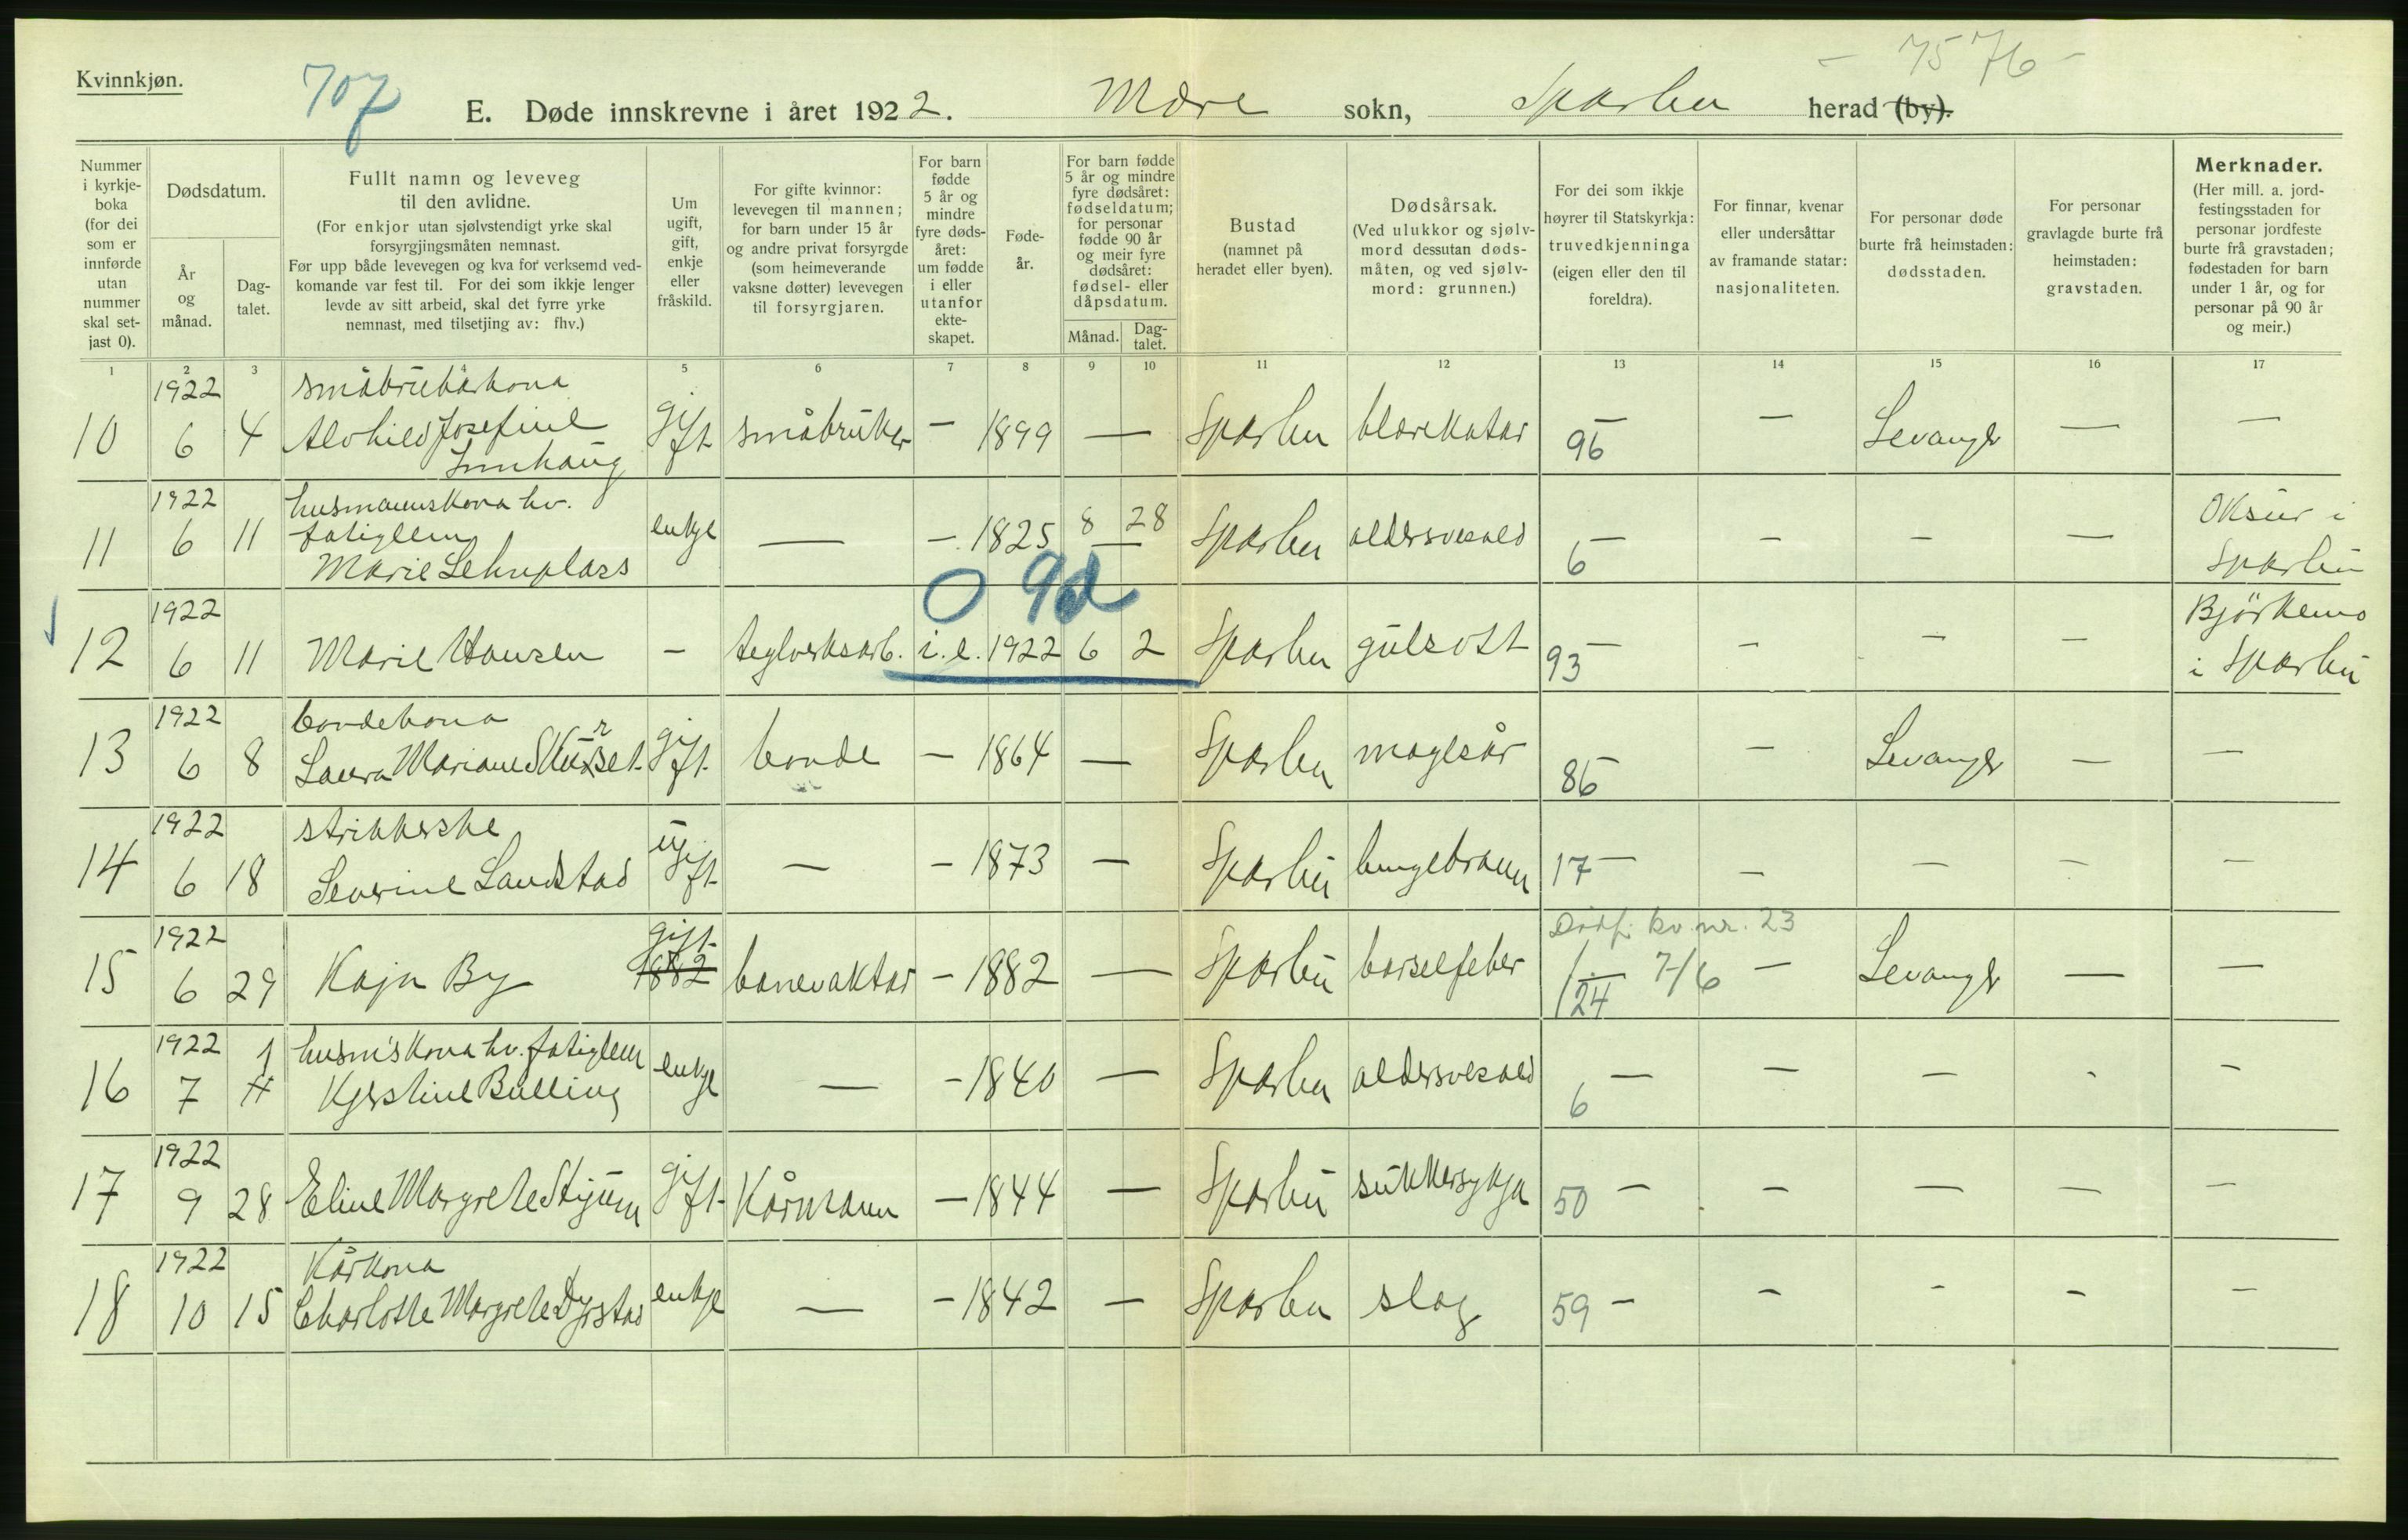 Kvinnkjøn.
707
- 75 76 -
E. Døde innskrevne i året 1922. Mære sokn, Sparbu herad (by).
Nummer i kyrkje-boka (for dei som er innførde utan nummer skal set-jast 0).
Dødsdatum.
År og månad.
Dag-talet.
Fullt namn og leveveg til den avlidne.
(For enkjor utan sjølvstendigt yrke skal forsyrgjingsmåten nemnast.
Før upp både levevegen og kva for verksemd ved-komande var fest til. For dei som ikkje lenger levde av sitt arbeid, skal det fyrre yrke nemnast, med tilsetjing av: fhv.)
Um ugift, gift, enkje eller fråskild.
For gifte kvinnor: levevegen til mannen; for barn under 15 år og andre privat forsyrgde (som heimeverande vaksne døtter) levevegen til forsyrgjaren.
For barn fødde 5 år og mindre fyre døds-året: um fødde i eller utanfor ekte-skapet.
Føde-år.
For barn fødde 5 år og mindre fyre dødsåret: fødseldatum; for personar fødde 90 år og meir fyre dødsåret: fødsel- eller dåpsdatum.
Månad.
Dag-talet.
Bustad (namnet på heradet eller byen).
Dødsårsak.
(Ved ulukkor og sjølv-mord dessutan døds-måten, og ved sjølv-mord: grunnen.)
For dei som ikkje høyrer til Statskyrkja: truvedkjenninga (eigen eller den til foreldra).
For finnar, kvenar eller undersåttar av framande statar: nasjonaliteten.
For personar døde burte frå heimstaden: dødsstaden.
For personar gravlagde burte frå heimstaden: gravstaden.
Merknader.
(Her mill. a. jord-festingsstaden for personar jordfeste burte frå gravstaden; fødestaden for barn under 1 år, og for personar på 90 år og meir.)
1 2 3 4 5 6 7 8 9 10 11 12 13 14 15 16 17
1922 småbrukarkona
10 6 4 Alvhild Josefine gift småbruker - 1899 — Sparbu blærekatar 96 - - Levanger — —
1922 husmannskona hv. 8 28 Oksur i
11 6 11 fatiglem enkje — - 1825 — Sparbu aldersvekald 6 - - - — Sparbu
Marie Lehnplass
0 9d
1922 Bjørkemo
12 6 11 Marie Hansen - teglverksarb. i.e. 1922 6 2 Sparbu gulsott 93 - - - - i Sparbu
1922 bondekona
13 6 8 Laura Mariane gift bonde - 1864 — Sparbu magesår 86 - - Levanger — —
1922 strikkerske
14 6 18 Severine Landstad ugift — - 1873 — Sparbu lungebrann 17 - - - - -
1922 gift Dødf. kv. nr. 23
15 6 29 Kaja By 1882 banevaktar - 1882 — Sparbu barselfeber 1 - 24 7/6 - Levanger — —
1922 1 husm'skona hv. fatiglem
16 7 Kjerstine Bulling enkje — - 1840 — Sparbu aldersvekald 6 - - - - -
1922
17 9 28 Eline Margrete gift Kårmann - 1844 — Sparbu sukkersykja 50 - - - - -
1922 Kårkona
18 10 15 Charlotte Margrete Dyrstad enkje — - 1842 — Sparbu slag 59 - - - - -